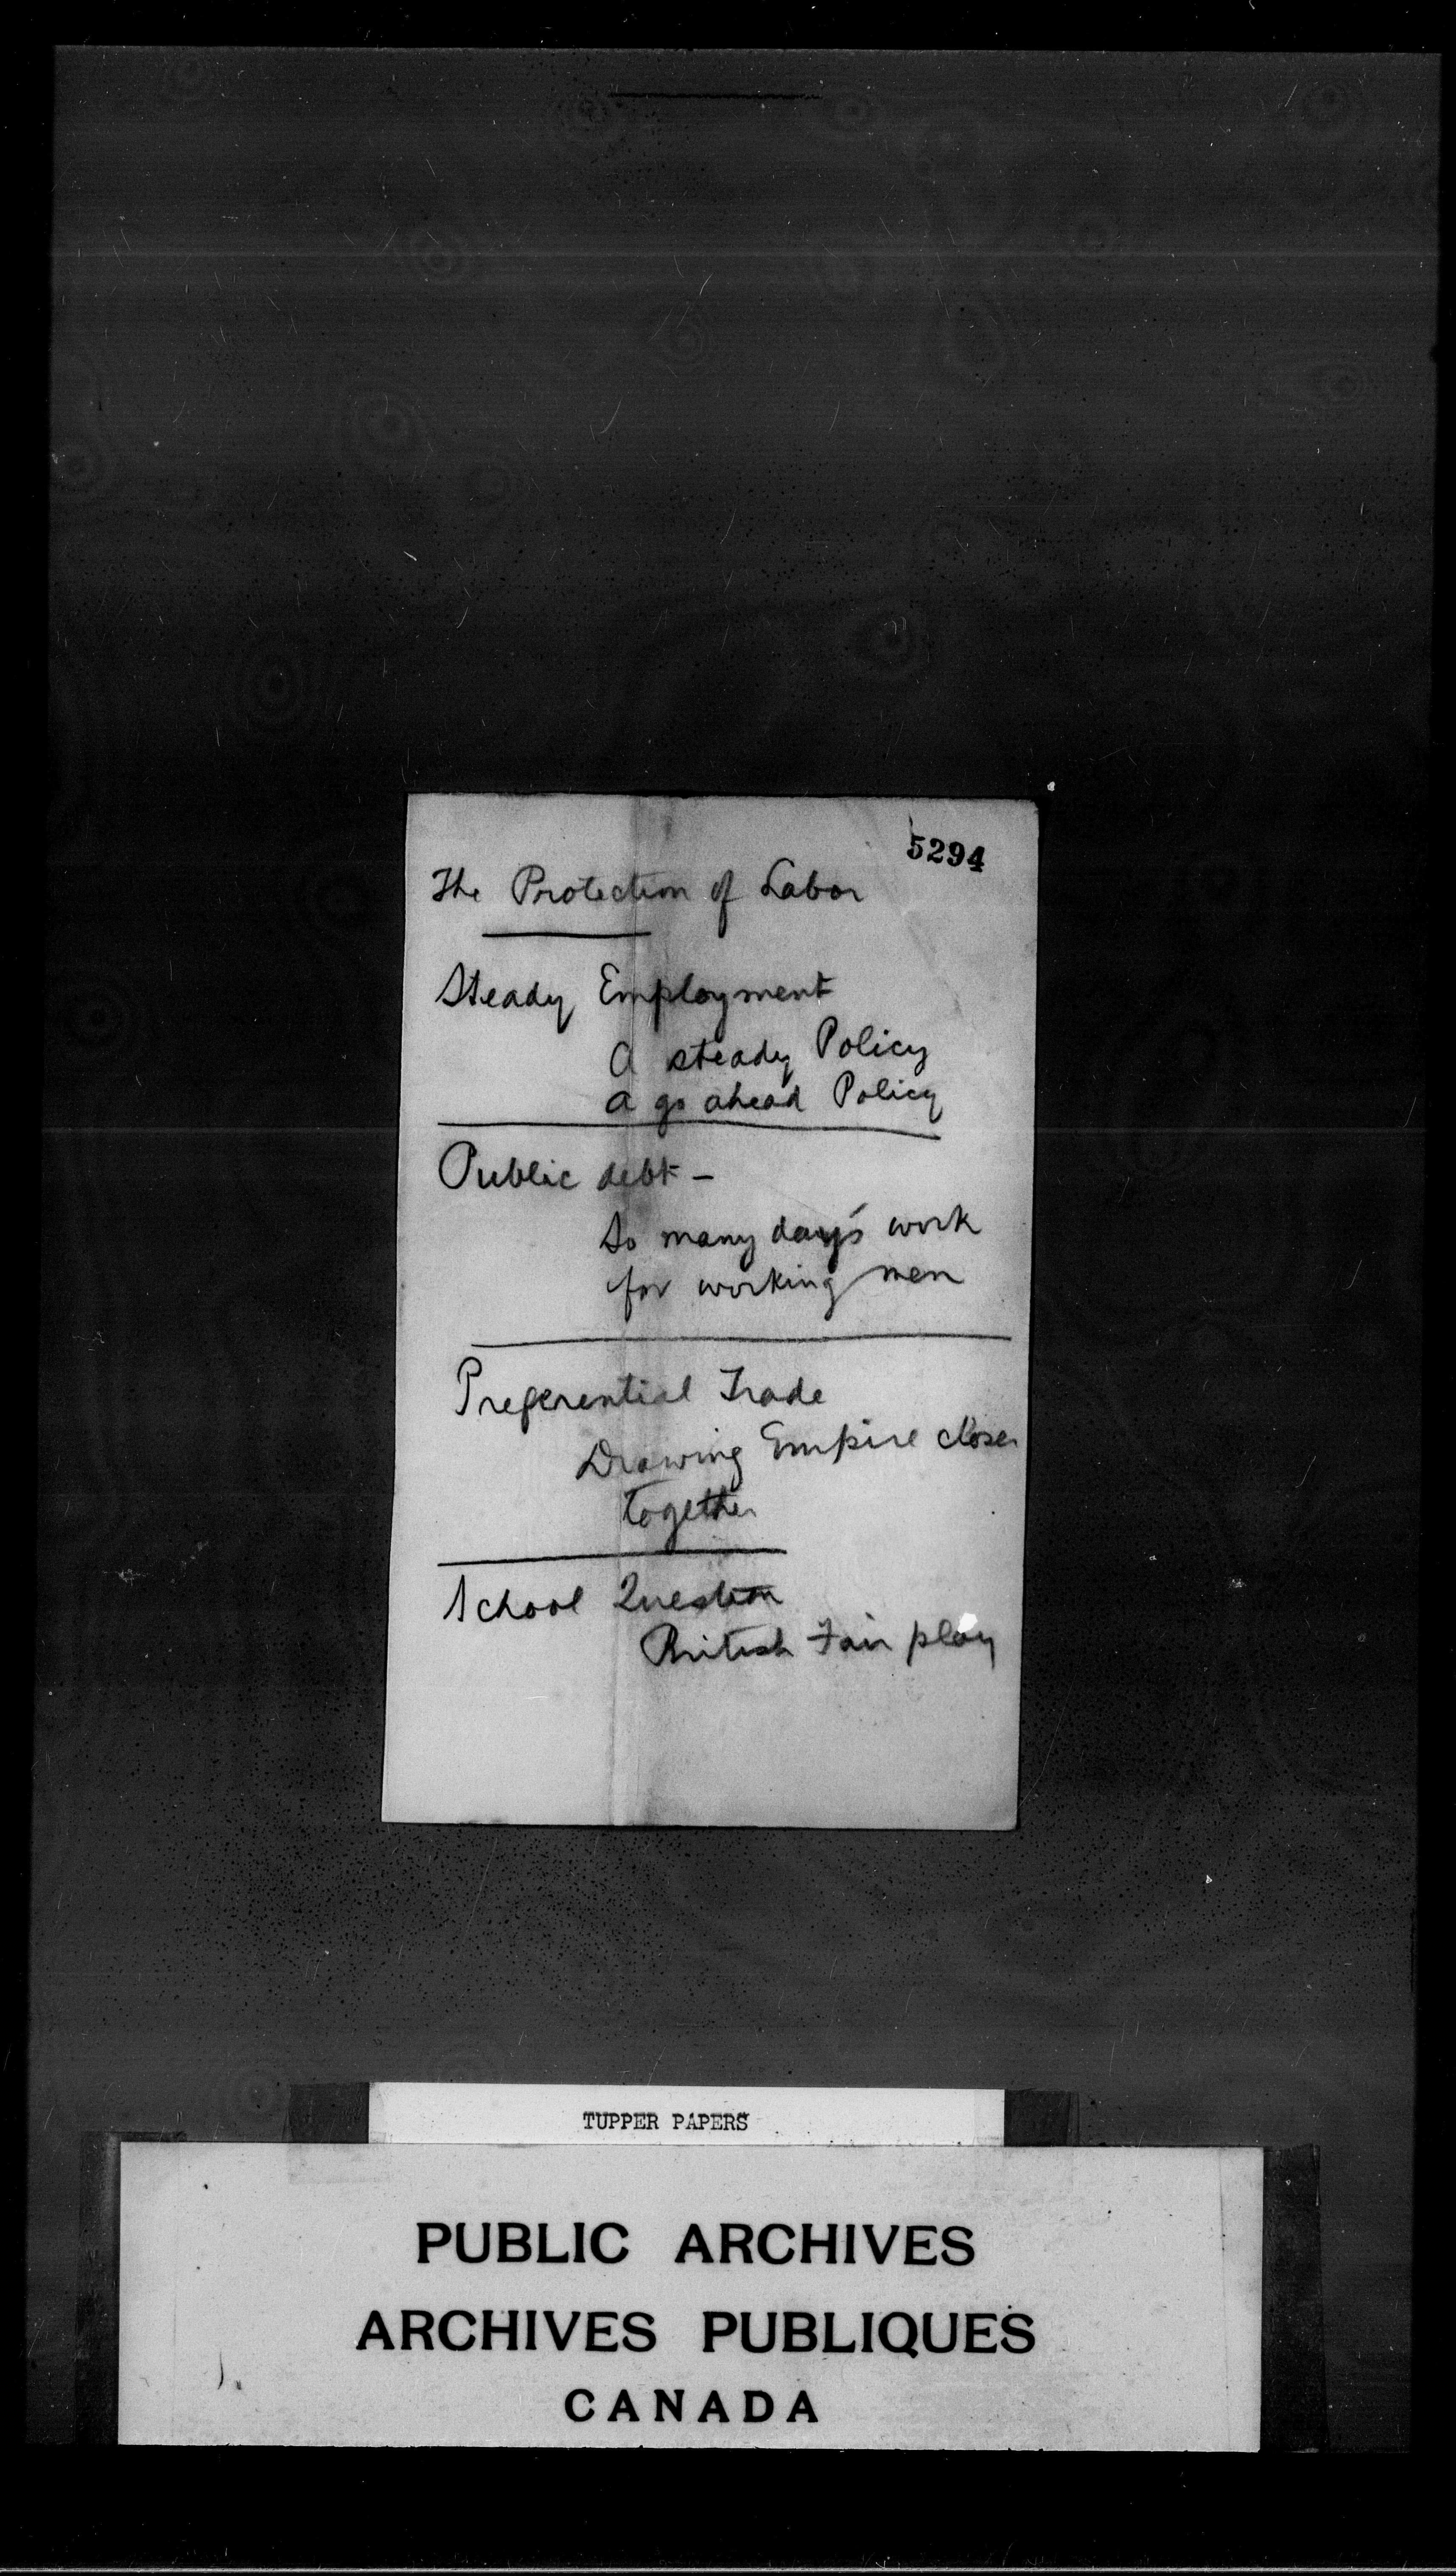 5294
The Protection of Labor
Steady Employment
A steady Policy
A go ahead Policy
Public debt -
So many day's work
for working men
Preferential Trade
Drawing Empire closer
together
School Question
British Fair play
TUPPER PAPERS
PUBLIC ARCHIVES
ARCHIVES PUBLIQUES
CANADA